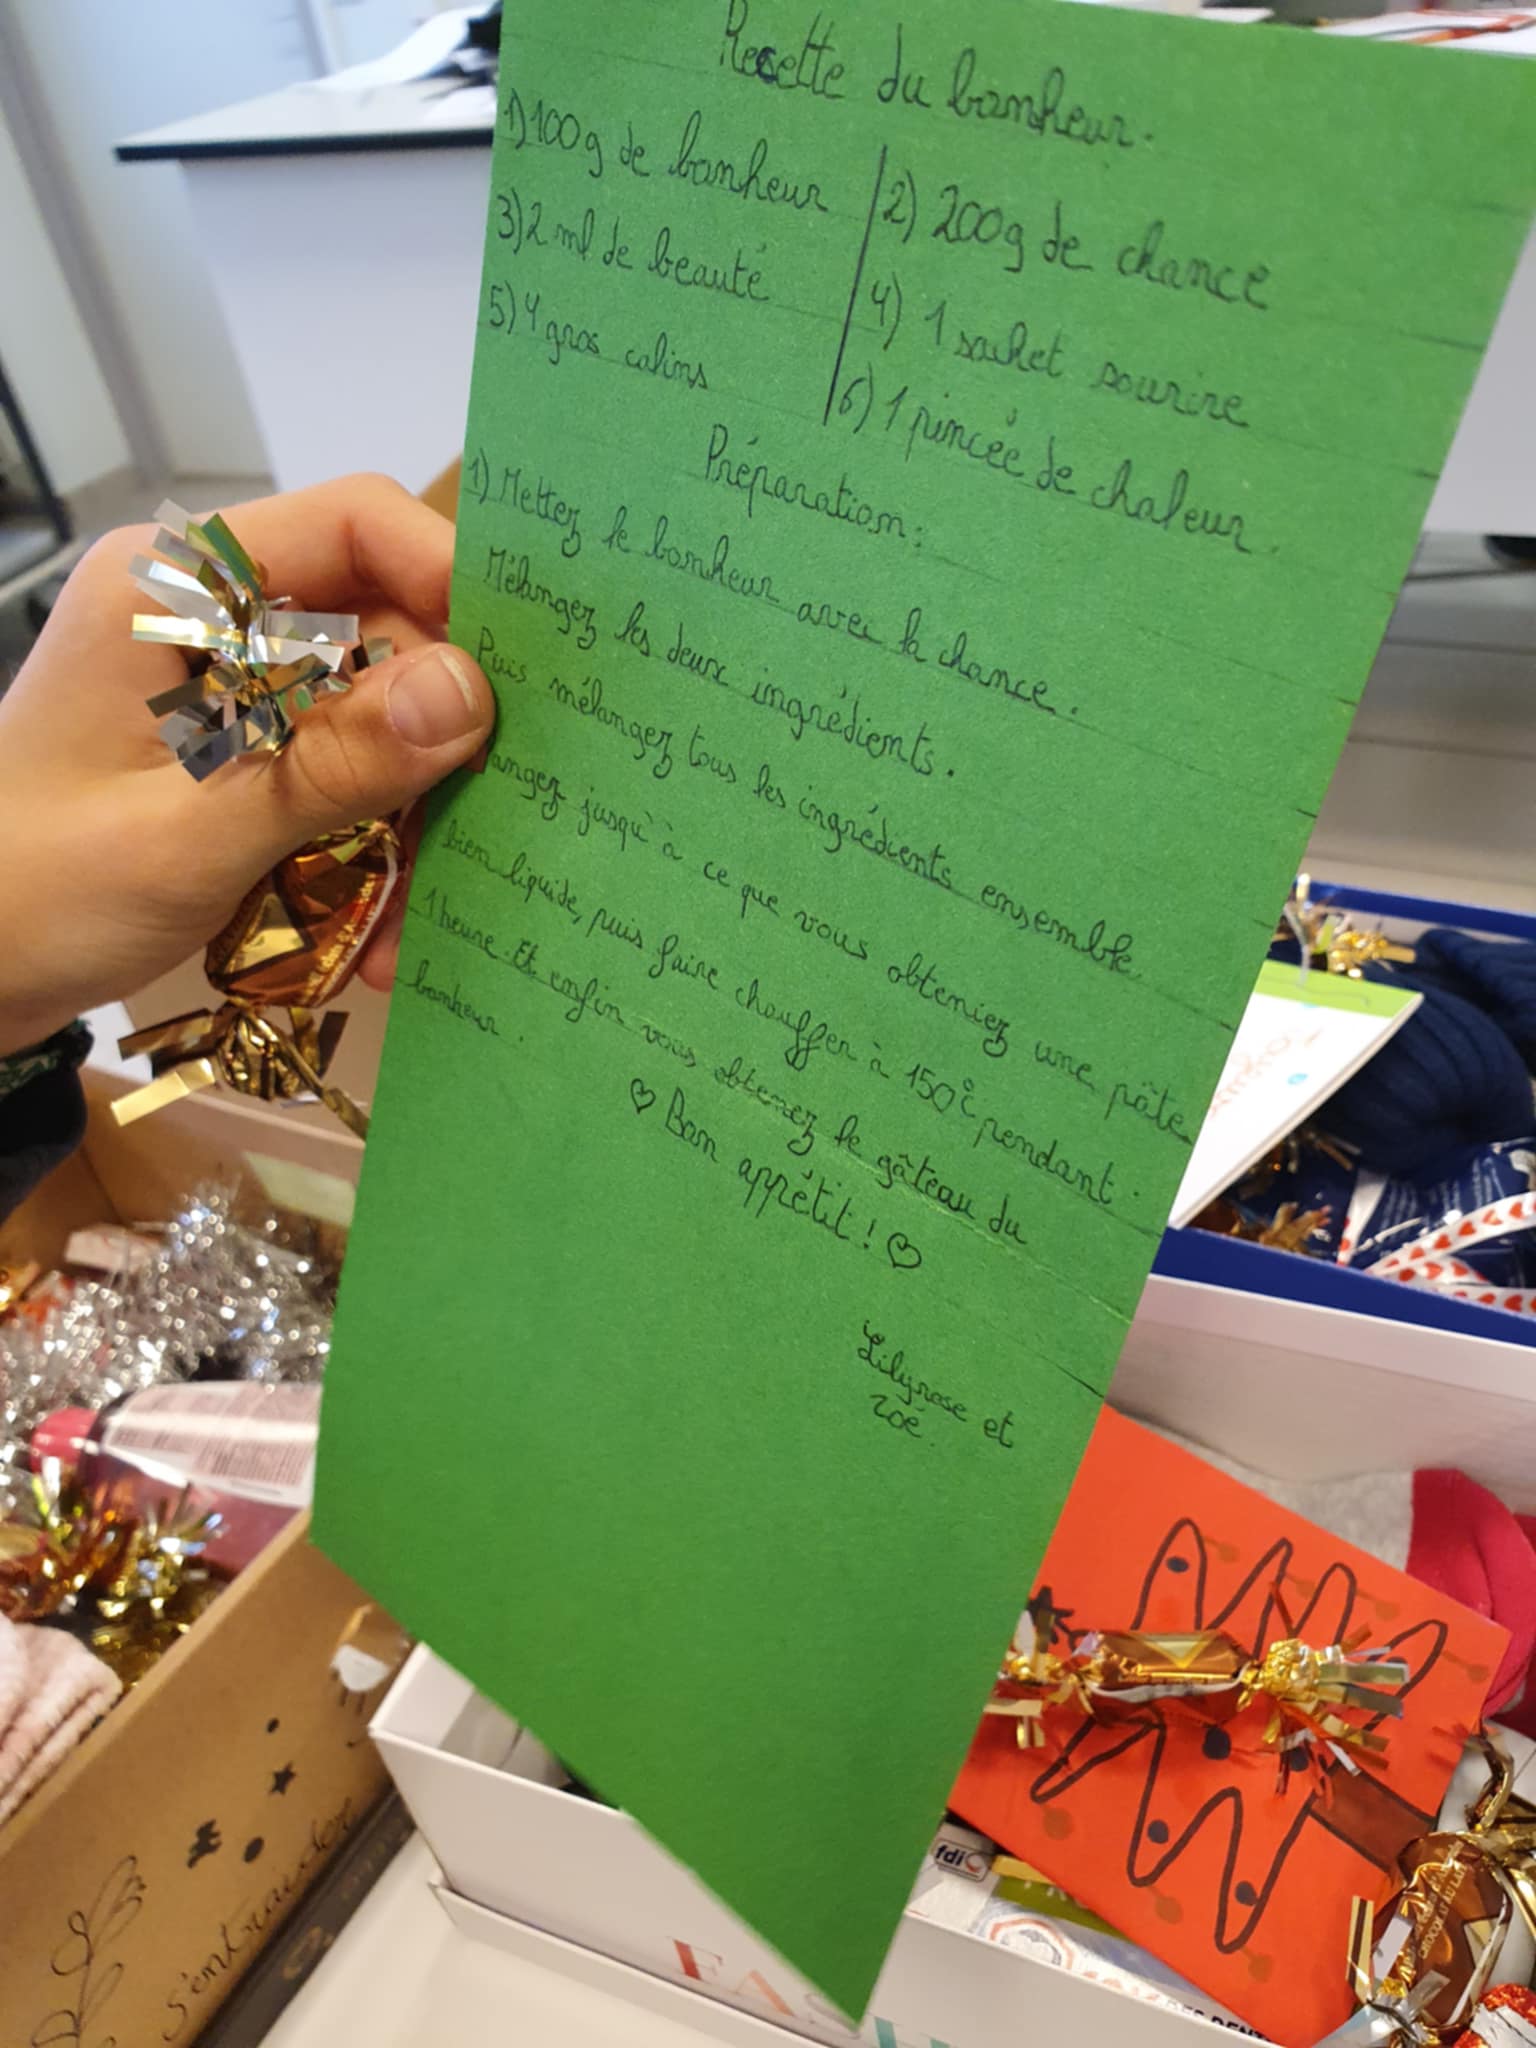 Recette du bonheur.
1) 100g de bonheur
2) 200g de chance
3) 2 ml de beauté
4) 1 sachet sourire
5) 4 gros calins
6) 1 pincée de chaleur.
Préparation :
1) Mettez le bonheur avec la chance.
Mélangez les deux ingrédients.
Puis mélangez tous les ingrédients ensemble.
angez jusqu'à ce que vous obteniez une pâte
bien liquide, puis faire chauffer à 150°c pendant
1 heure. Et enfin vous obtenez le gâteau du
bonheur.
♡ Bon appétit ! ♡
Lilyrose et
Zoé.
s'entraider
fdi
FASH
CHOCOLAT AU LAIT